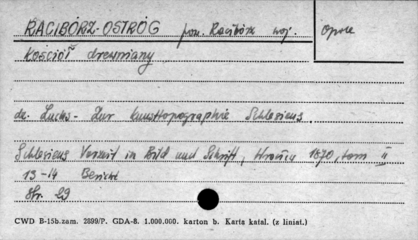 RACIBÓRZ-OSTRÓG pow. Racibórz woj. Opole
Kościół drewniany
dr. Luchs - Zur Kunsttopographie Schlesiens.
Schlesiens Vorzeit in Bild und Schrift, 1870, tom II
13-14 Bericht
Str. 29
CWD B-15b.zam. 2899/P. GDA-8. 1.000.000. karton b. Karta katal. (z liniat.)